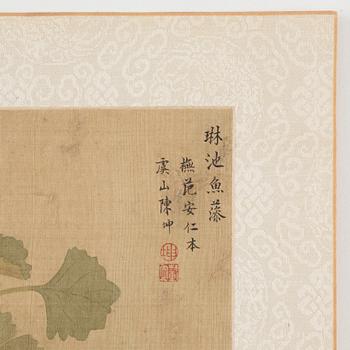 琳池魚藻
橅范安仁本
虞山陳坤